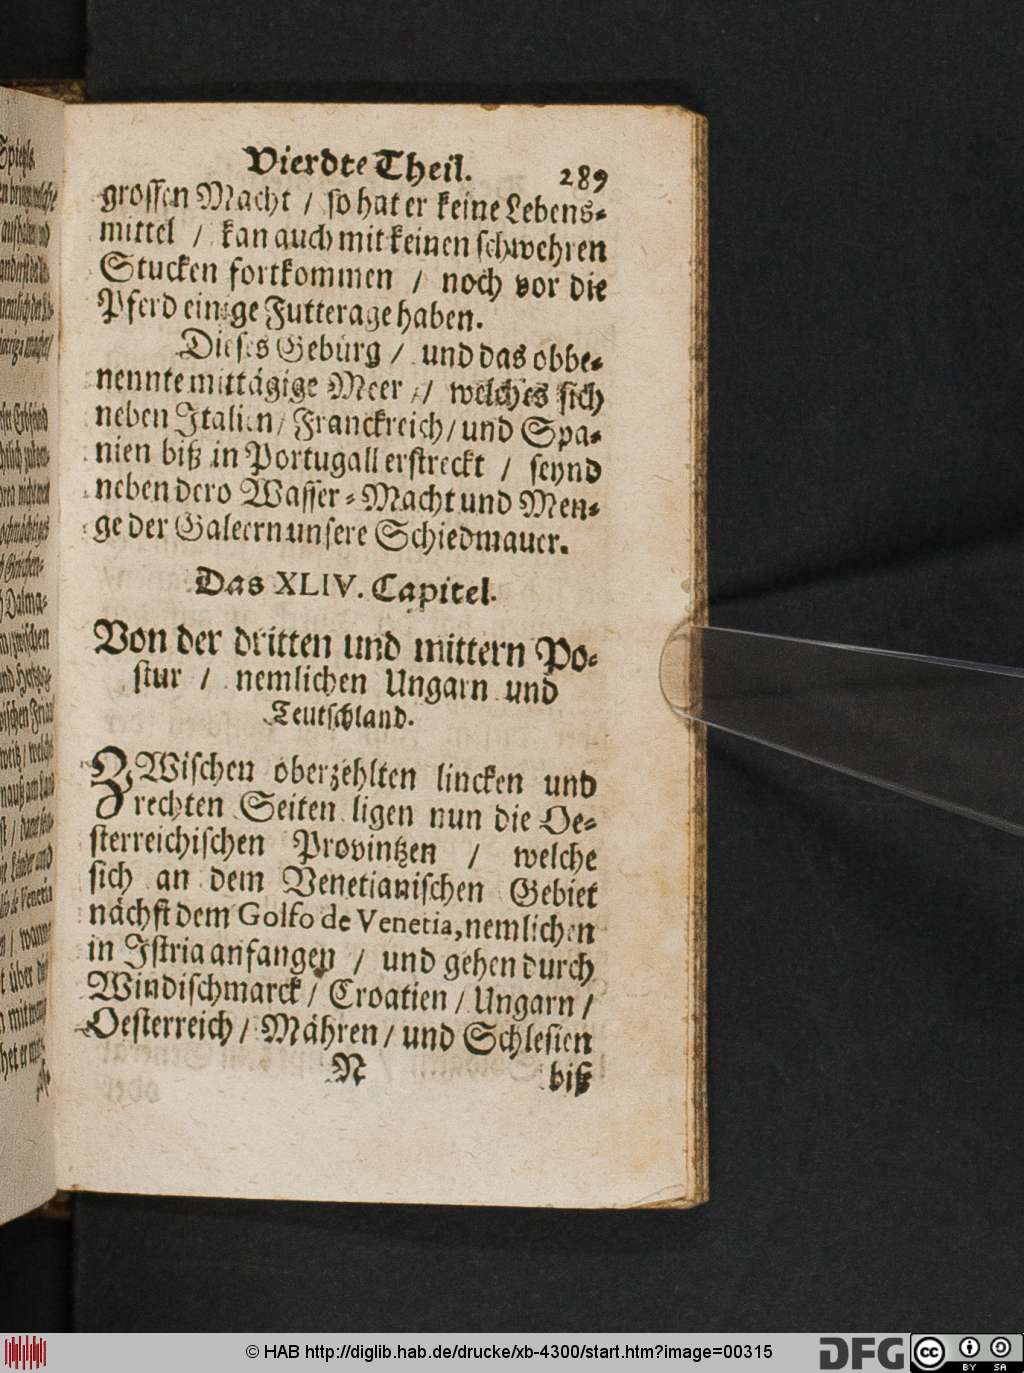 Vierdte Theil. 289
grossen Macht / so hat er keine Lebens-
mittel / kan auch mit keinen schwehren
Stucken fortkommen / noch vor die
Pferd einige Futterage haben.
Dieses Gebürg / und das obbe-
nennte mittägige Meer / welches sich
neben Italien / Franckreich / und Spa-
nien biß in Portugall erstreckt / seynd
neben dero Wasser-Macht und Men-
ge der Galeern unsere Schiedmauer.
Das XLIV. Capitel.
Von der dritten und mittern Po-
stur / nemlichen Ungarn und
Teutschland.
ZWischen oberzehlten lincken und
rechten Seiten ligen nun die Oe-
sterreichischen Provintzen / welche
sich an dem Venetianischen Gebiet
nächst dem Golfo de Venetia, nemlichen
in Istria anfangen / und gehen durch
Windischmarck / Croatien / Ungarn /
Oesterreich / Mähren / und Schlesien
N biß
© HAB http://diglib.hab.de/drucke/xb-4300/start.htm?image=00315
DFG
cc BY SA